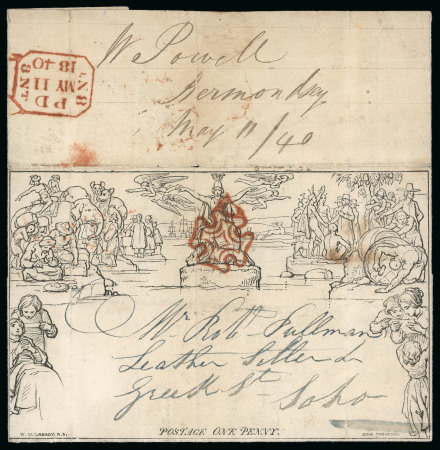 W Powell
Bermondsey
May 11/40
8NB
PD
MY 11
1840
8NT
Mr Robt Pullman
Leather Seller &
Greek St Soho
POSTAGE ONE PENNY.
W. MULREADY. R.A.
JOHN THOMPSON